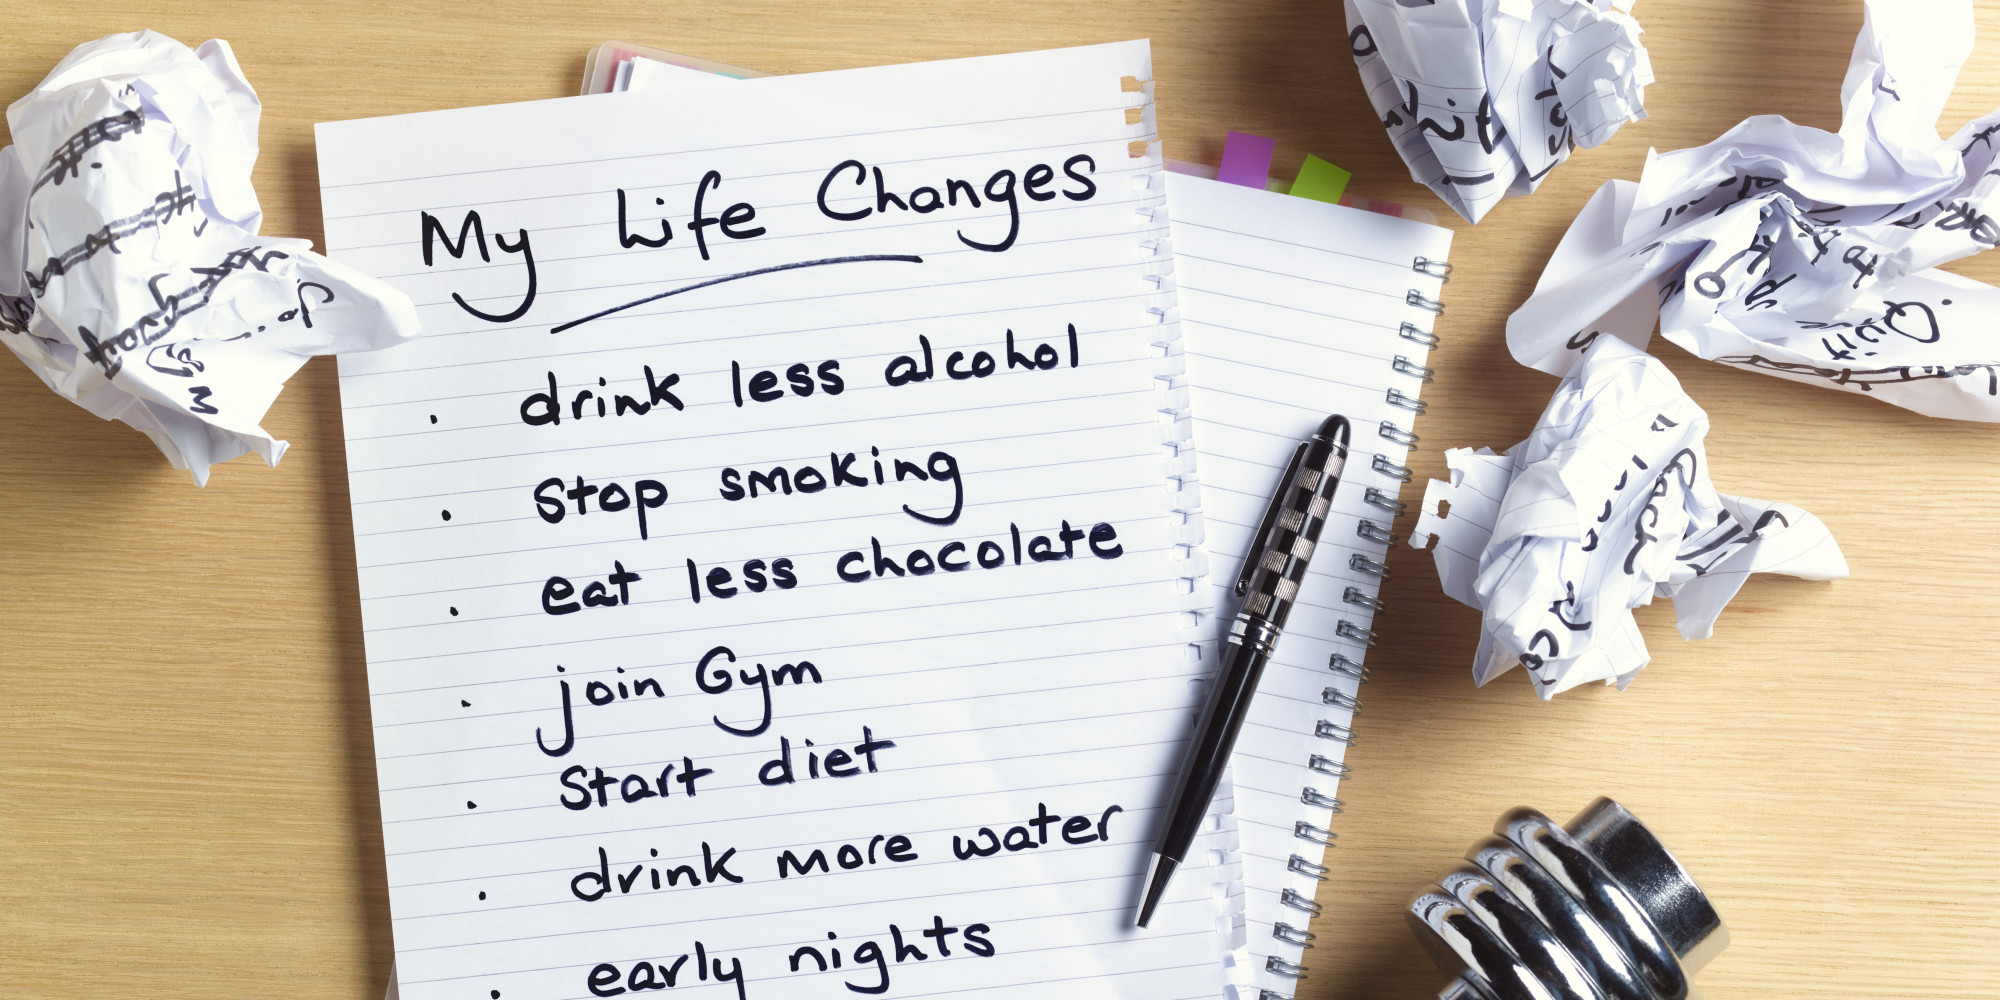 My Life Changes
· drink less alcohol
· stop smoking
· eat less chocolate
· join Gym
· Start diet
· drink more water
· early nights
Quit